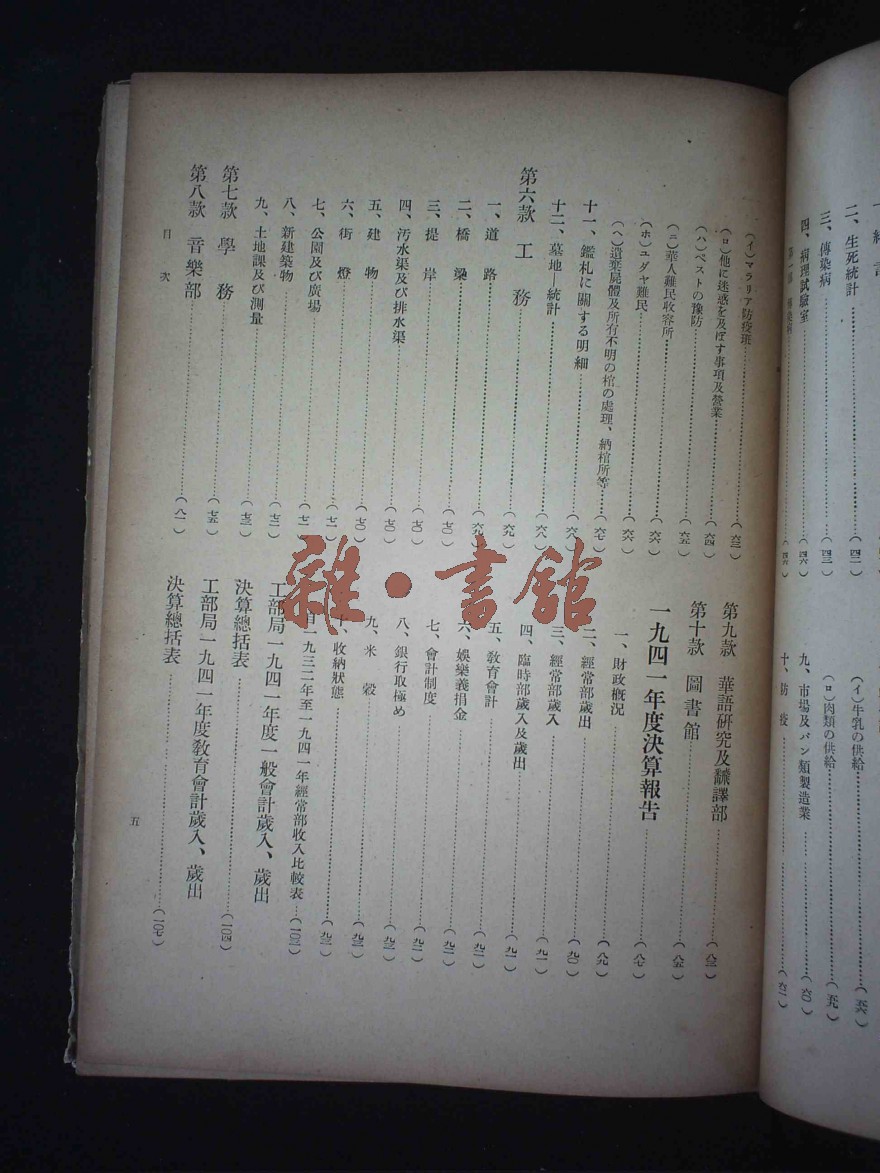 二、生死統計……(四二)
三、傳染病……(四三)
四、病理試驗室……(四六)
(イ)牛乳の供給……(五六)
(ロ)肉類の供給……(五九)
九、市場及パン類製造業……(六〇)
十、防疫……(六二)
(イ)マラリア防疫班……(六三)
(ロ)他に迷惑を及ぼす事項及營業……(六四)
(ハ)ペストの豫防……(六五)
(ニ)華人難民收容所……(六六)
(ホ)ユダヤ難民……(六六)
(ヘ)遺棄屍體及所有不明の棺の處理、納棺所等……(六七)
十一、鑑札に關する明細……(六八)
十二、墓地—統計……(六八)
第六款 工務……(六九)
一、道路……(六九)
二、橋梁……(七〇)
三、提岸……(七〇)
四、汚水渠及び排水渠……(七〇)
五、建物……(七〇)
六、街燈……(七一)
七、公園及び廣場
八、新建築物
九、土地課及び測量
第七款 學務……(七五)
第八款 音樂部……(八一)
目次
第九款 華語研究及飜譯部……(八三)
第十款 圖書館……(八五)
一九四一年度決算報告……(八七)
一、財政概況……(八九)
二、經常部歲出……(九〇)
三、經常部歲入……(九一)
四、臨時部歲入及歲出……(九一)
五、教育會計
六、娛樂義捐金
七、會計制度
八、銀行取極め
九、米穀
十、收納狀態
自一九三二年至一九四一年經常部收入比較表……(一〇三)
工部局一九四一年度一般會計歲入、歲出
決算總括表……(一〇四)
工部局一九四一年度教育會計歲入、歲出
決算總括表……(一〇七)
五
雜·書館